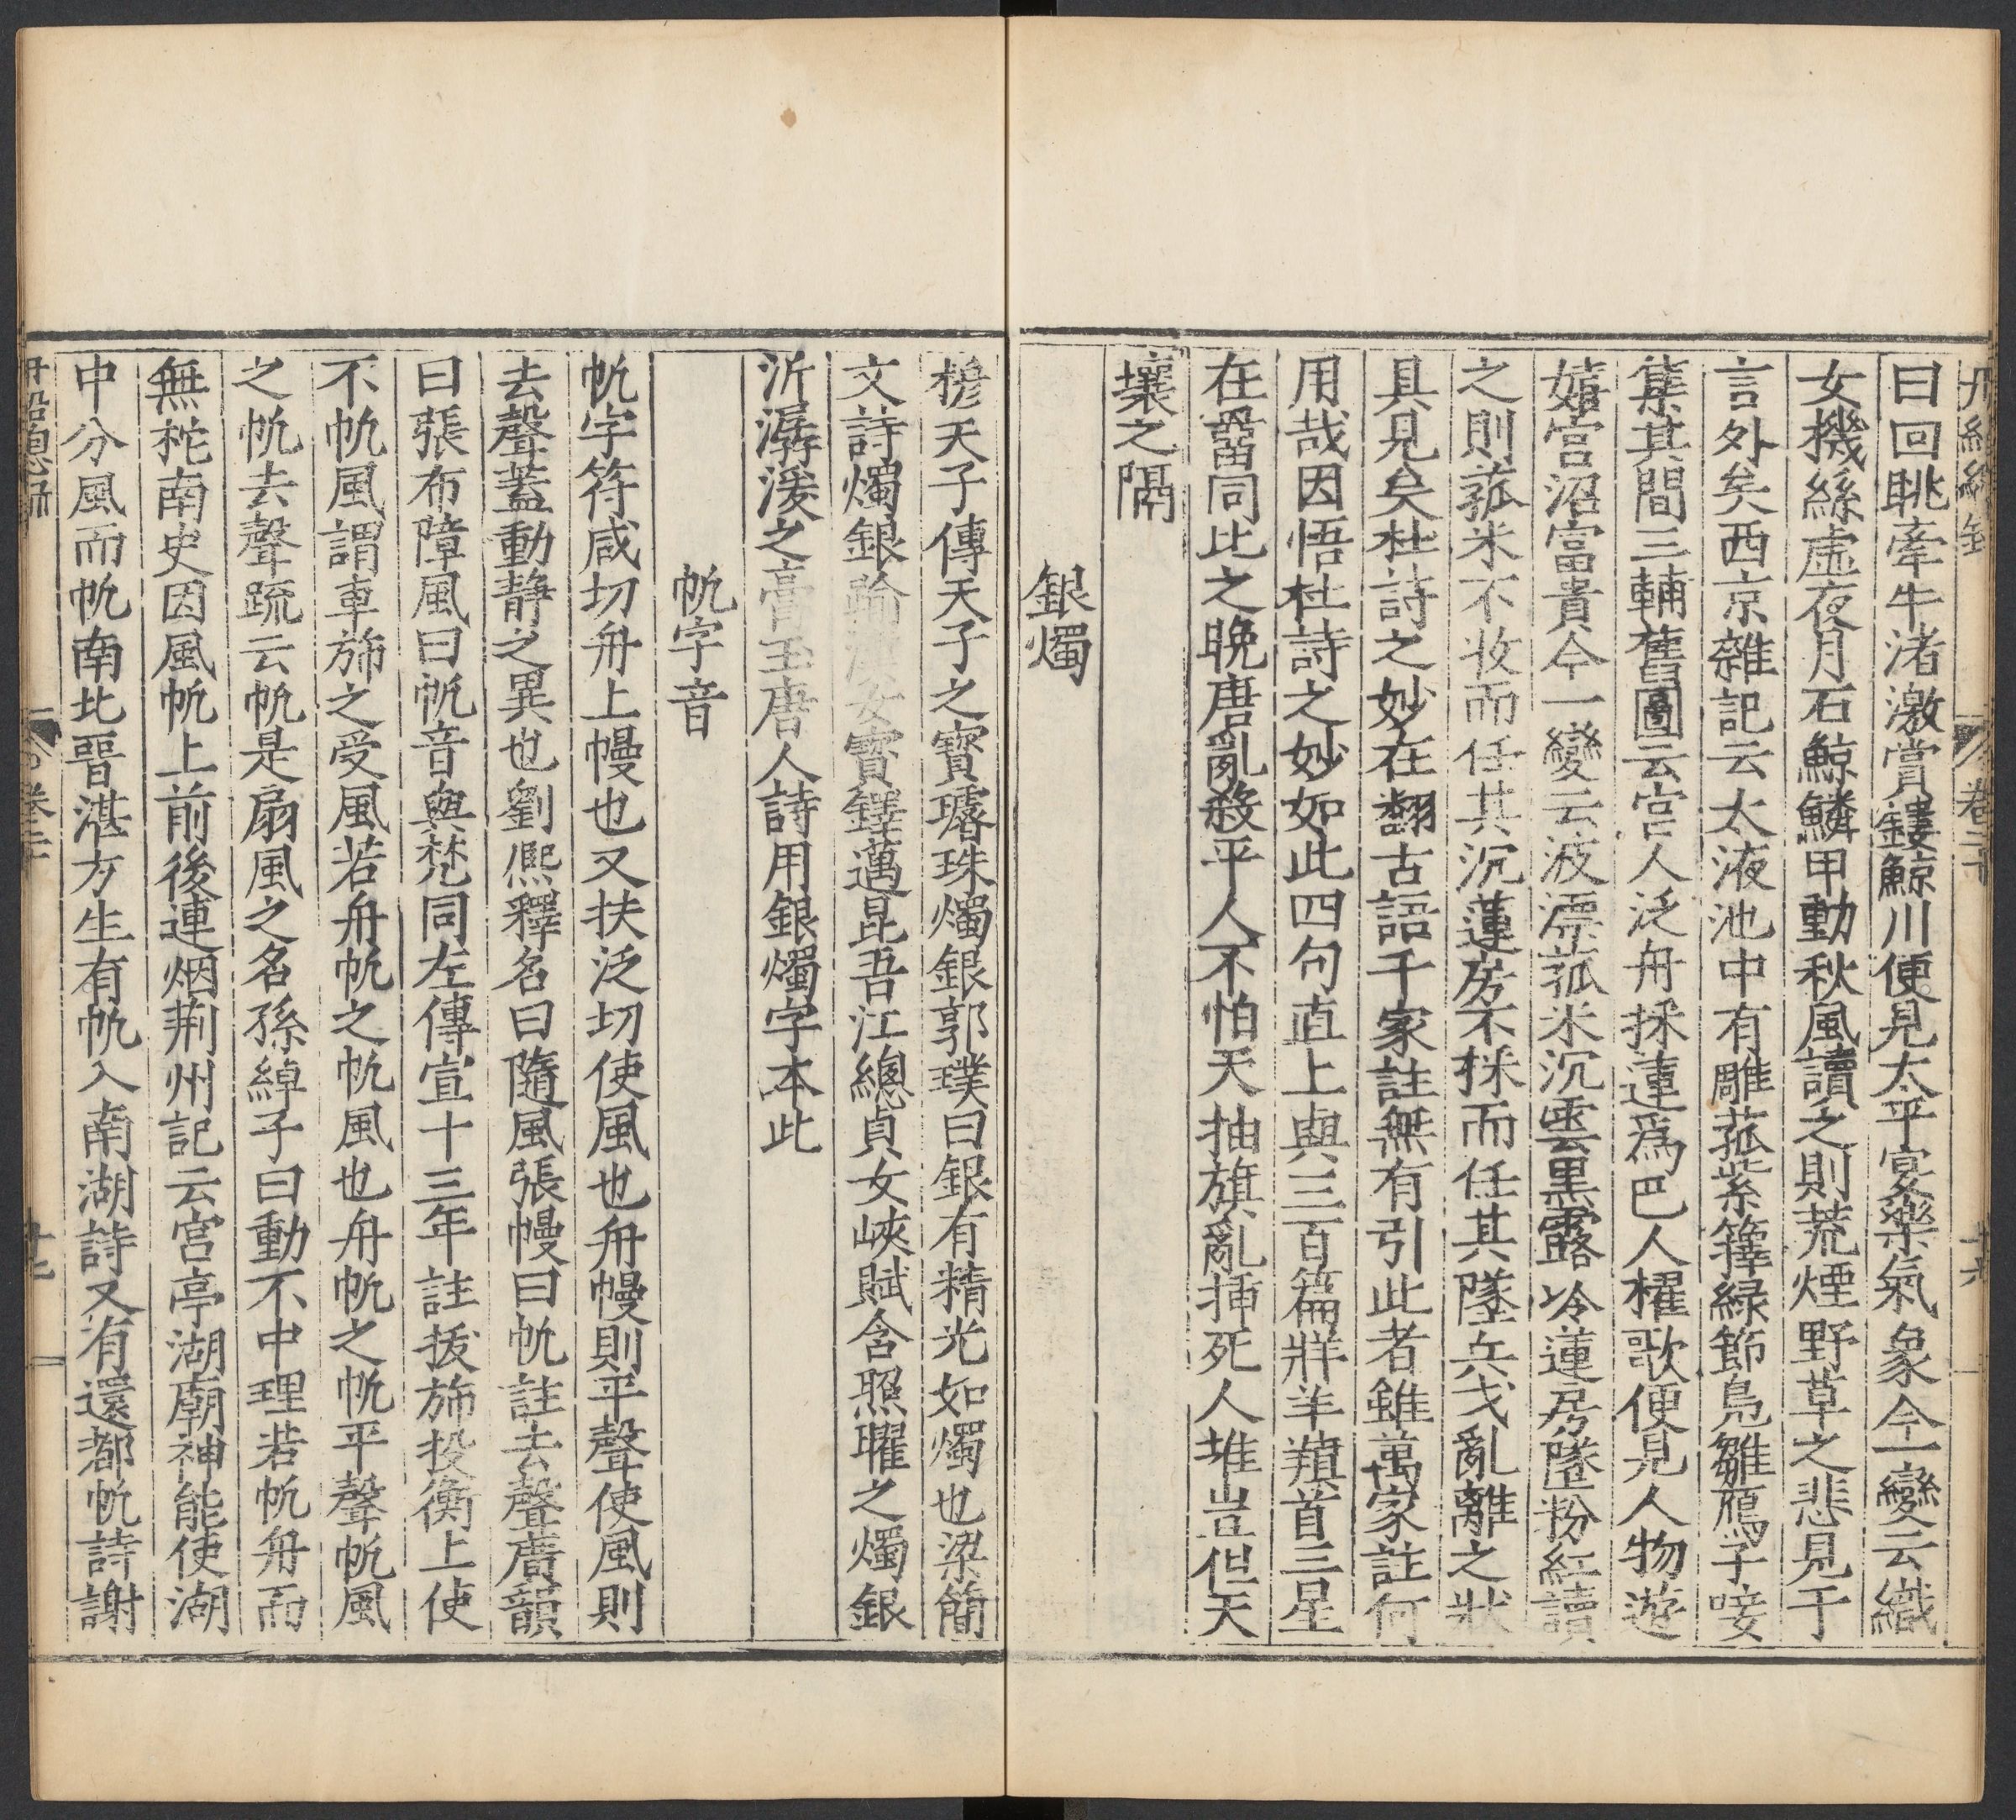 丹鉛總錄
卷二十
十六
曰回眺牽牛渚激賞鏤鯨川便見太平宴樂氣象今一變云織
女機絲虛夜月石鯨鱗甲動秋風讀之則荒煙野草之悲見于
言外矣西京雜記云太液池中有雕菰紫籜綠節鳧雛鴈子唼
其間三輔舊圖云宮人泛舟採蓮爲巴人櫂歌便見人物遊
嬉宮沼富貴今一變云波漂菰米沉雲黑露冷蓮房墜粉紅讀
之則菰米不收而任其沉蓮房不採而任其墜兵戈亂離之狀
具見矣杜詩之妙在翻古語千家註無有引此者雖萬家註何
用哉因悟杜詩之妙如此四句直上與三百篇牂羊羵首三星
在罶同比之晚唐亂殺平人不怕天抽旗亂揷死人堆豈但天
壤之隔
銀燭
穆天子傳天子之寶璿珠燭銀郭璞曰銀有精光如燭也梁簡
文詩燭銀踰漢女寶鐸邁昆吾江總貞女峽賦含照曜之燭銀
泝潺湲之膏玉唐人詩用銀燭字本此
帆字音
帆字符咸切舟上幔也又扶泛切使風也舟幔則平聲使風則
去聲蓋動静之異也劉熙釋名曰隨風張幔曰帆註去聲廣韻
曰張布障風曰帆音與梵同左傳宣十三年註拔斾投衡上使
不帆風謂車斾之受風若舟帆之帆風也舟帆之帆平聲帆風
之帆去聲疏云帆是扇風之名孫綽子曰動不中理若帆舟而
無柁南史因風帆上前後連烟荆州記云宮亭湖廟神能使湖
中分風而帆南北晋湛方生有帆入南湖詩又有還都帆詩謝
卷二十
十七